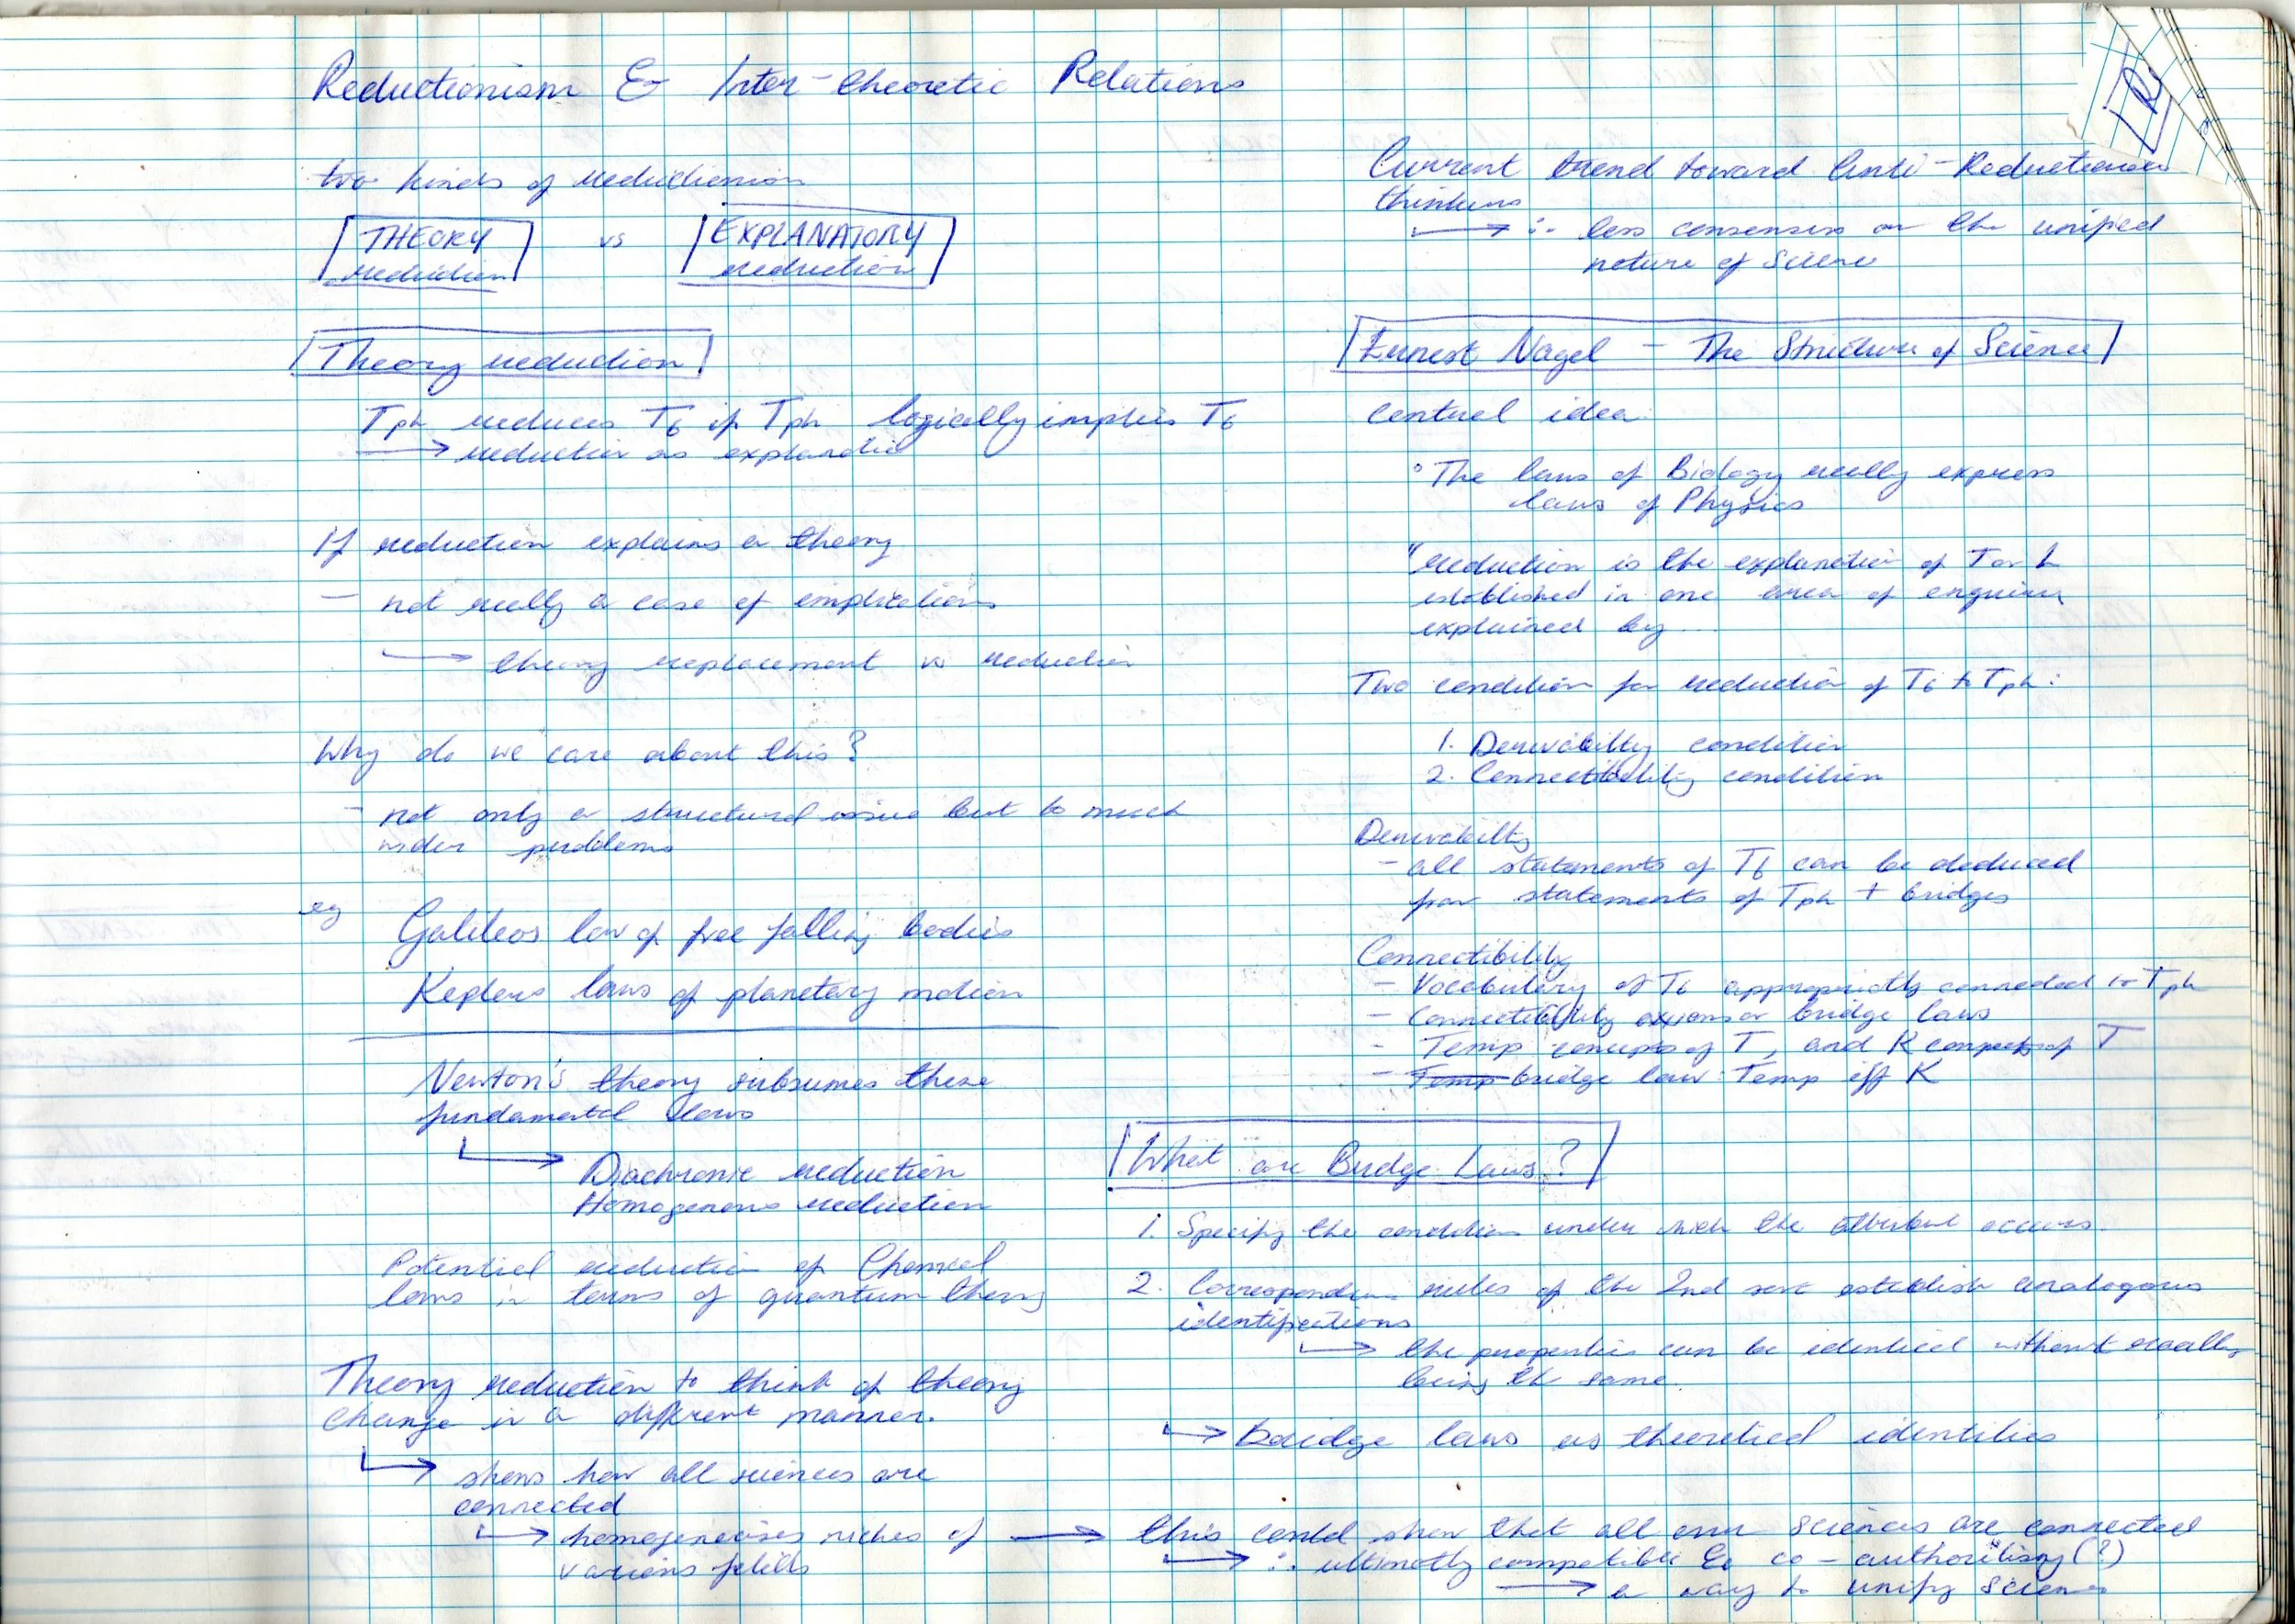 Reductionism & Inter-theoretic Relations
two kinds of reductionism
THEORY reduction vs EXPLANATORY reduction
Theory reduction
Tph reduces T6 if Tph logically implies T6
→ reduction as explanation
If reduction explains a theory
- not really a case of implications
→ theory replacement vs reduction
Why do we care about this?
- not only a structural issue but to much
wider problems
eg Galileos law of free falling bodies
Keplers laws of planetary motion
Newton's theory subsumes these
fundamental laws
→ Diachronic reduction
Homogenous reduction
Potential reduction of Chemical
laws in terms of quantum theory
Theory reduction to think of theory
change in a different manner.
→ shows how all sciences are
connected
→ homogeneises niches of
various fields
Current trend toward Anti-Reductionist
thinkers
→ ∴ less consensus on the unified
nature of Science
Ernest Nagel - The Structure of Science
Central idea
° The laws of Biology really express
laws of Physics
"reduction is the explanation of T or L
established in one area of enquiry
explained by ...
Two condition for reduction of T6 to Tph:
1. Derivability condition
2. Connectibility condition
Derivability
- all statements of T6 can be deduced
from statements of Tph + bridges
Connectibility
- Vocabulary of T6 appropriatly connected to Tph
- Connectibility axioms or bridge laws
- Temp concepts of T, and K concepts of T
- Temp bridge law: Temp iff K
What are Bridge Laws?
1. Specify the condition under which the attribut occurs.
2. Correspondence rules of the 2nd sort establish analogous
identifications
→ the properties can be identical without exactly
being the same.
→ bridge laws as theoretical identities
→ this could show that all our sciences are connected
→ ∴ ultimatly compatible & co-authorising (?)
→ a way to unify Science